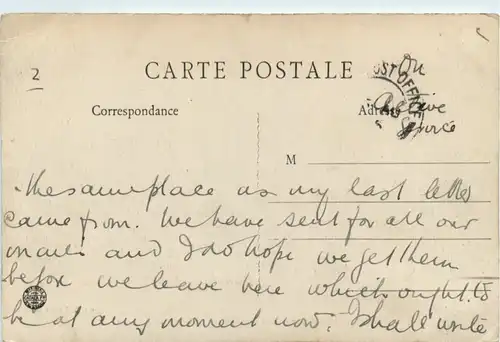 2
CARTE POSTALE
POST OFFICE
On
Active
Service
Correspondance
Adresse
M
the same place as my last letter
came from. We have sent for all our
mails and I do hope we get them
before we leave here which ought to
be at any moment now. I shall write